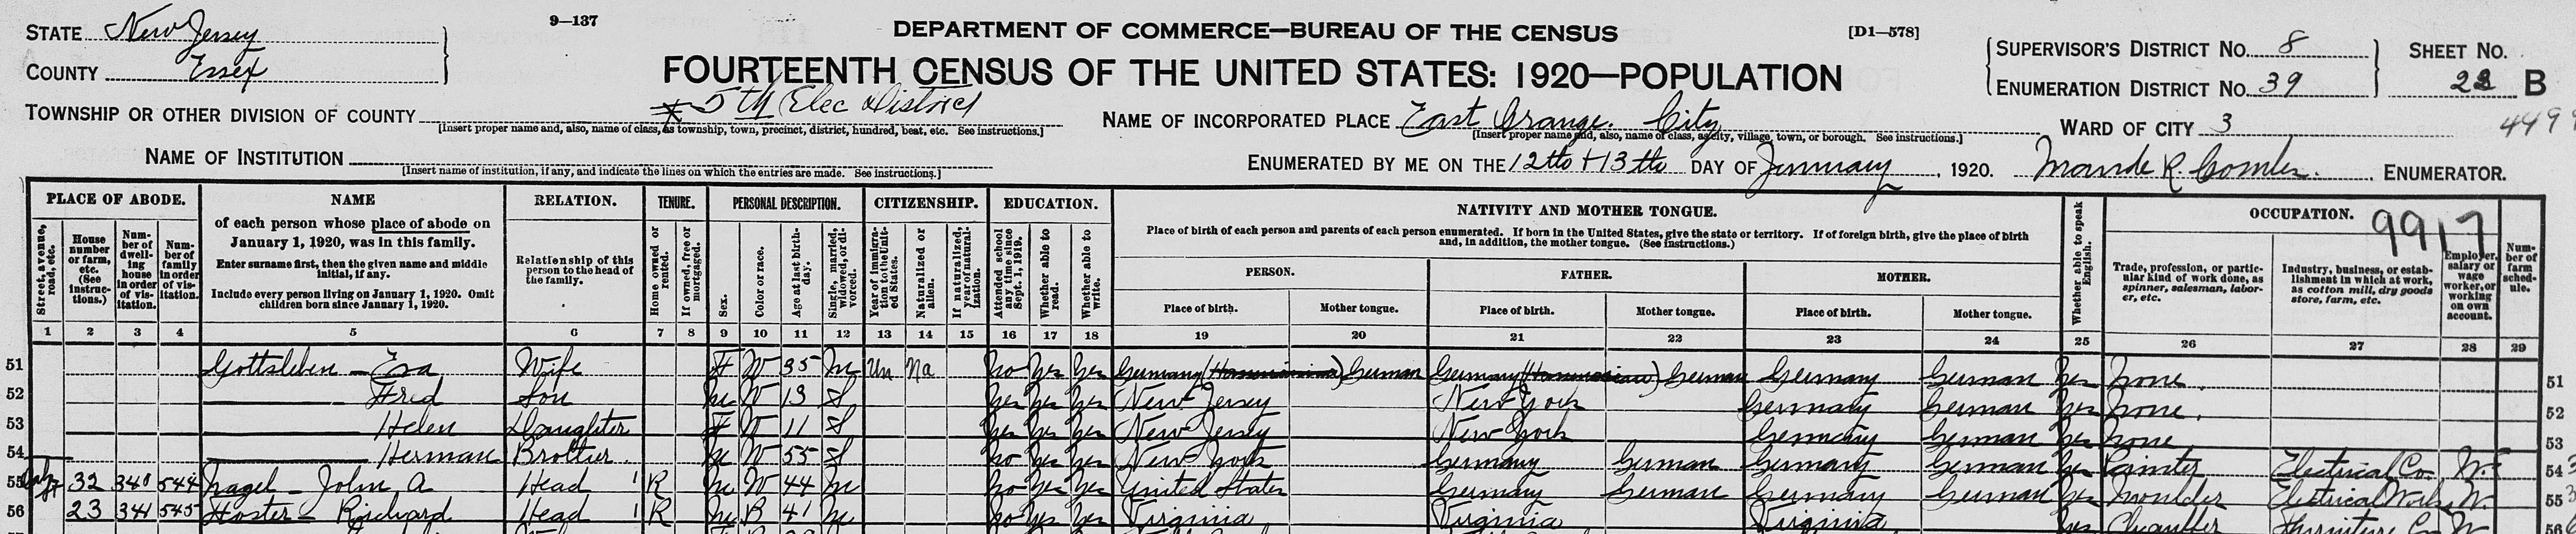 STATE New Jersey
COUNTY Essex
9—137
DEPARTMENT OF COMMERCE—BUREAU OF THE CENSUS
[D1—578]
FOURTEENTH CENSUS OF THE UNITED STATES: 1920—POPULATION
SUPERVISOR'S DISTRICT NO. 8
ENUMERATION DISTRICT NO. 39
SHEET NO.
B
TOWNSHIP OR OTHER DIVISION OF COUNTY 5th Elec District
[Insert proper name and, also, name of class, as township, town, precinct, district, hundred, beat, etc. See instructions.]
NAME OF INCORPORATED PLACE East Orange City
[Insert proper name and, also, name of class, as city, village, town, or borough. See instructions.]
WARD OF CITY 3
NAME OF INSTITUTION
[Insert name of institution, if any, and indicate the lines on which the entries are made. See instructions.]
ENUMERATED BY ME ON THE 12th + 13th DAY OF January, 1920. Maude R. ENUMERATOR.
PLACE OF ABODE.
Street, avenue, road, etc.
House number or farm, etc. (See instructions.)
Number of dwelling house in order of visitation.
Number of family in order of visitation.
NAME
of each person whose place of abode on January 1, 1920, was in this family.
Enter surname first, then the given name and middle initial, if any.
Include every person living on January 1, 1920. Omit children born since January 1, 1920.
RELATION.
Relationship of this person to the head of the family.
TENURE.
Home owned or rented.
If owned, free or mortgaged.
PERSONAL DESCRIPTION.
Sex.
Color or race.
Age at last birthday.
Single, married, widowed, or divorced.
CITIZENSHIP.
Year of immigration to the United States.
Naturalized or alien.
If naturalized, year of naturalization.
EDUCATION.
Attended school any time since Sept. 1, 1919.
Whether able to read.
Whether able to write.
NATIVITY AND MOTHER TONGUE.
Place of birth of each person and parents of each person enumerated. If born in the United States, give the state or territory. If of foreign birth, give the place of birth and, in addition, the mother tongue. (See instructions.)
PERSON.
Place of birth.
Mother tongue.
FATHER.
Place of birth.
Mother tongue.
MOTHER.
Place of birth.
Mother tongue.
Whether able to speak English.
OCCUPATION. 9917
Trade, profession, or particular kind of work done, as spinner, salesman, laborer, etc.
Industry, business, or establishment in which at work, as cotton mill, dry goods store, farm, etc.
Employer, salary or wage worker, or working on own account.
Number of farm schedule.
1 2 3 4 5 6 7 8 9 10 11 12 13 14 15 16 17 18 19 20 21 22 23 24 25 26 27 28 29
51 Gottsleben — Eva Wife F W 35 M Un Na no yes yes Germany German Germany German Germany German yes none 51
52 Fred Son M W 13 S yes yes yes New Jersey New York Germany German yes none 52
53 Helen Daughter F W 11 S yes yes yes New Jersey New York Germany German yes none 53
54 Herman Brother M W 55 S no yes yes New York Germany German Germany German yes Painter Electrical Co. W 54
55 32 340 544 Nagel — John A Head 1 R M W 44 M no yes yes United States Germany German Germany German yes Moulder Electrical Works W 55
56 23 341 545 Hoster — Richard Head 1 R M B 41 M no yes yes Virginia Virginia Virginia yes Chauffer Furniture Co W 56